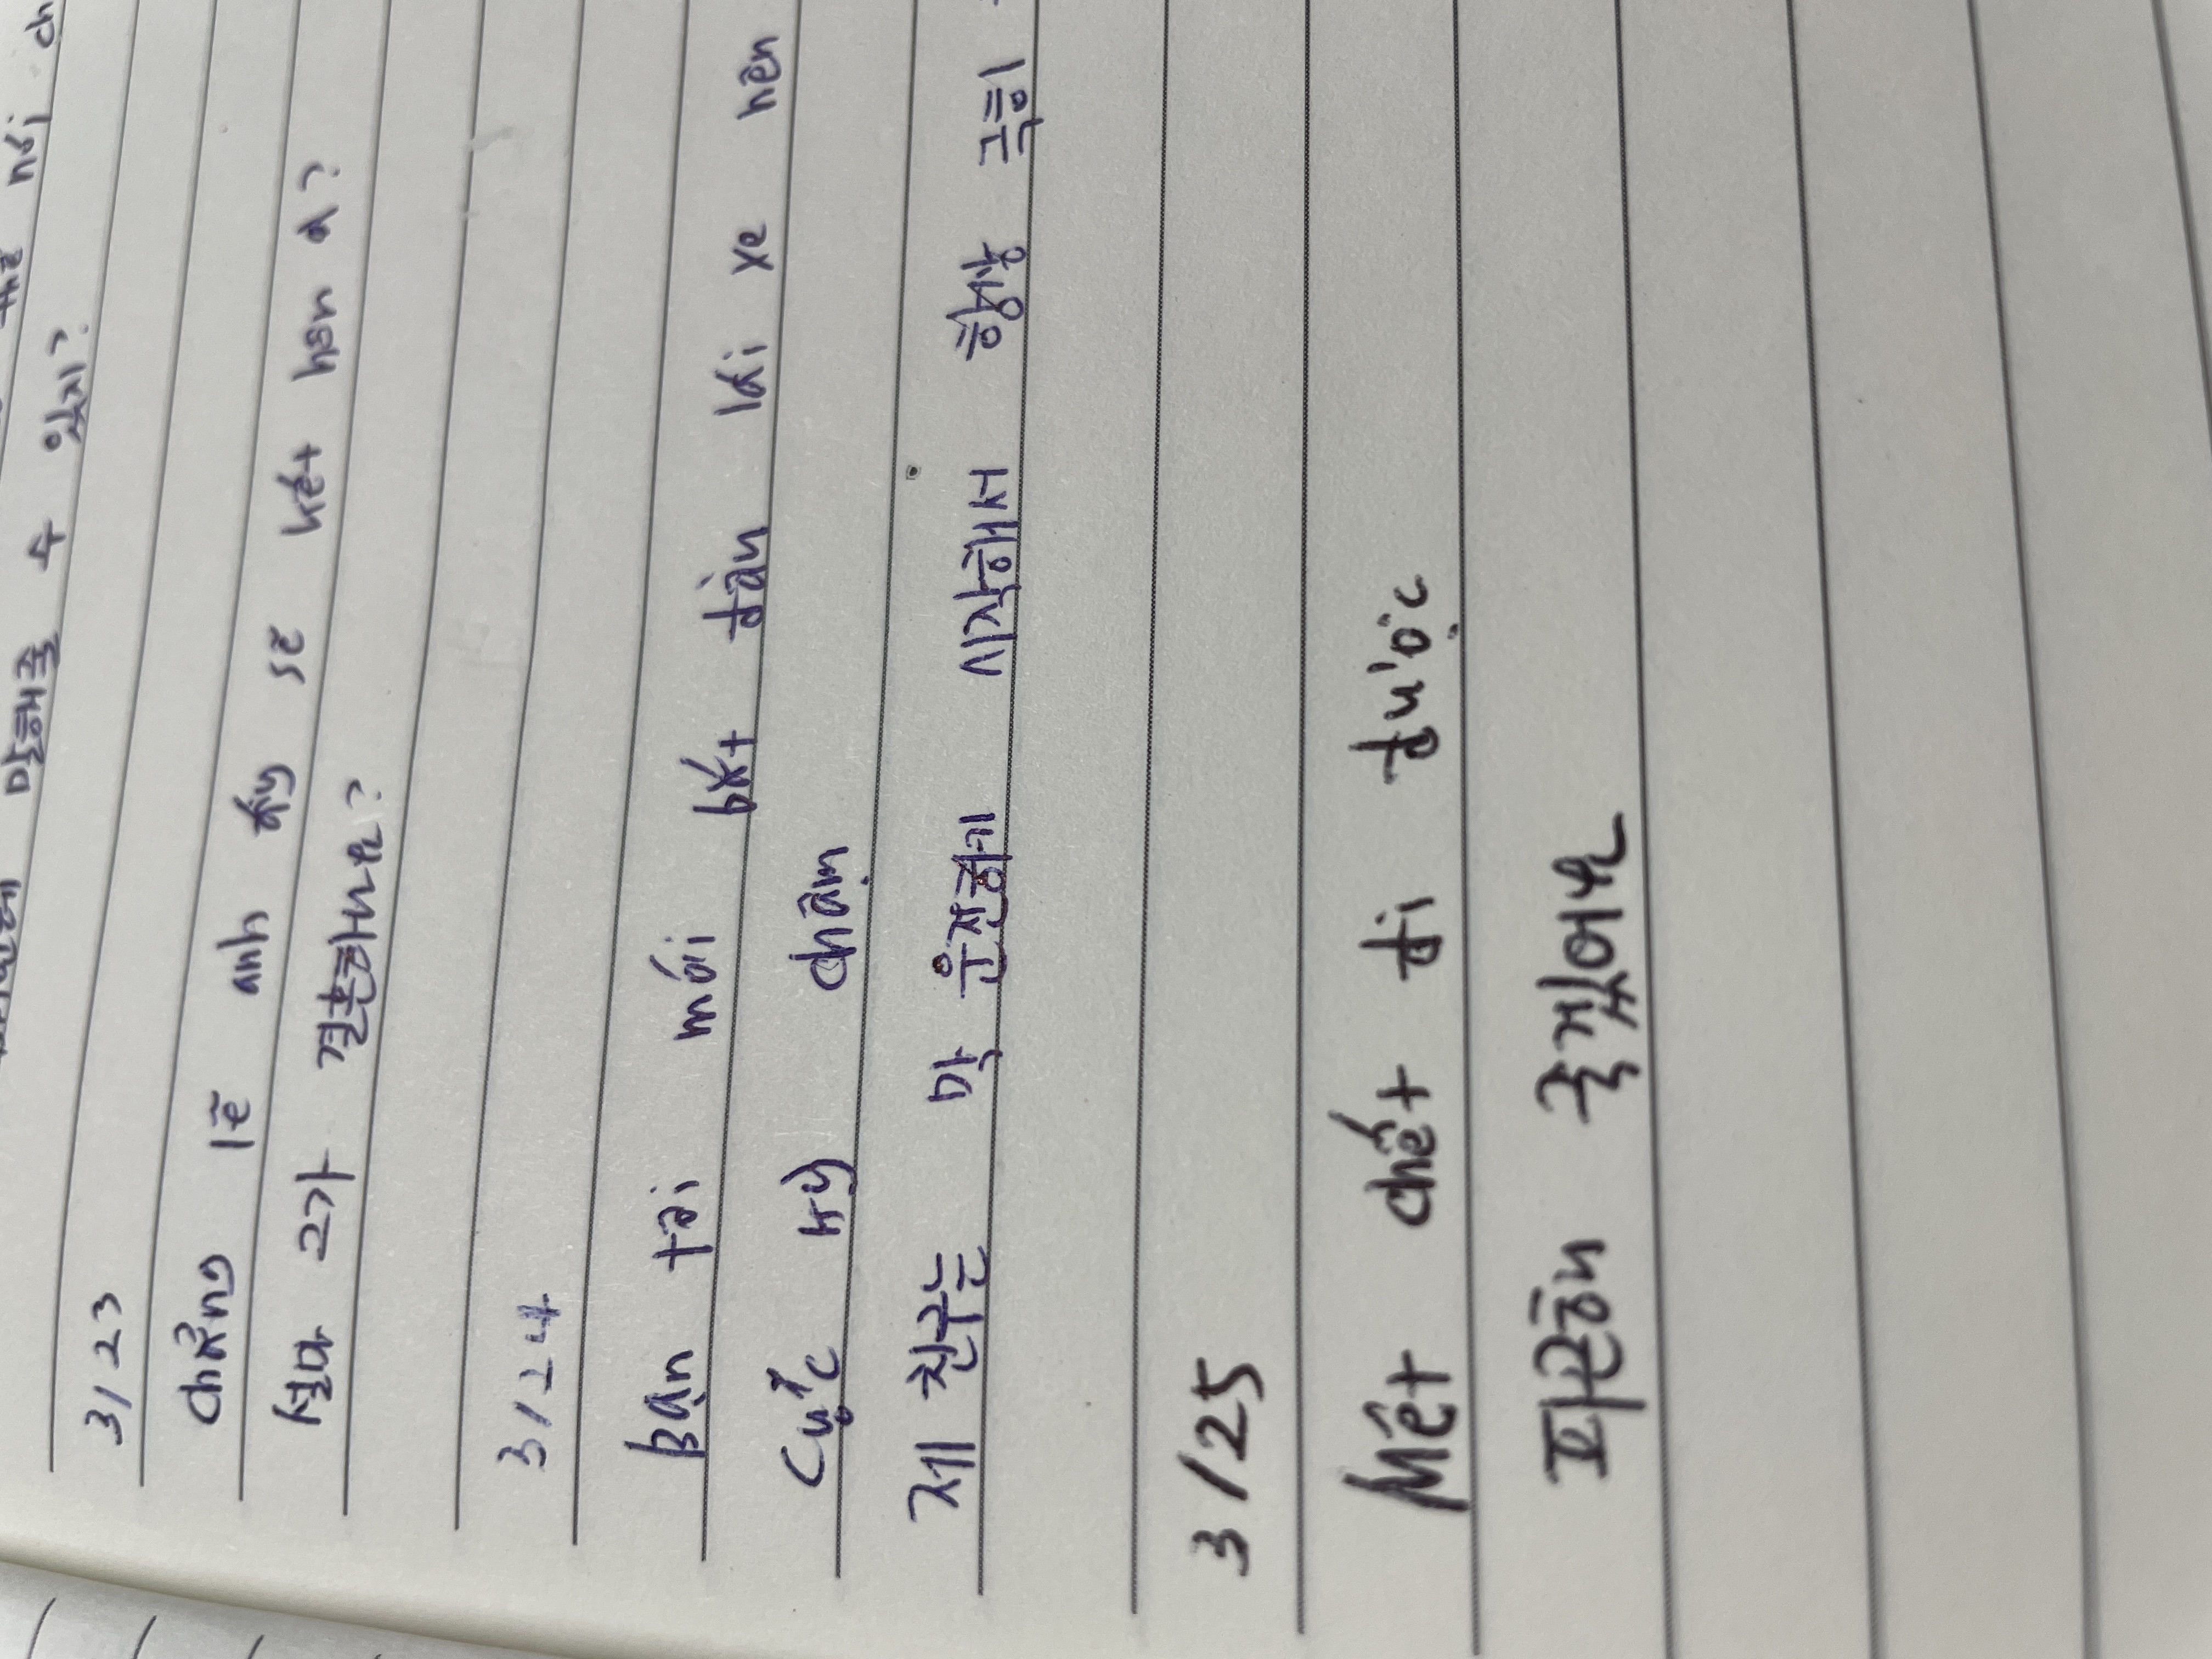 thể nói ch
말해줄 수 있지?
3/23
chẳng lẽ anh ấy sẽ kết hôn à?
설마 그가 결혼하나요?
3/24
Bạn tôi mới bắt đầu lái xe nên
cực kỳ chậm
제 친구는 막 운전하기 시작해서 항상 극히
3/25
Mệt chết đi được
피곤해 죽겠어요